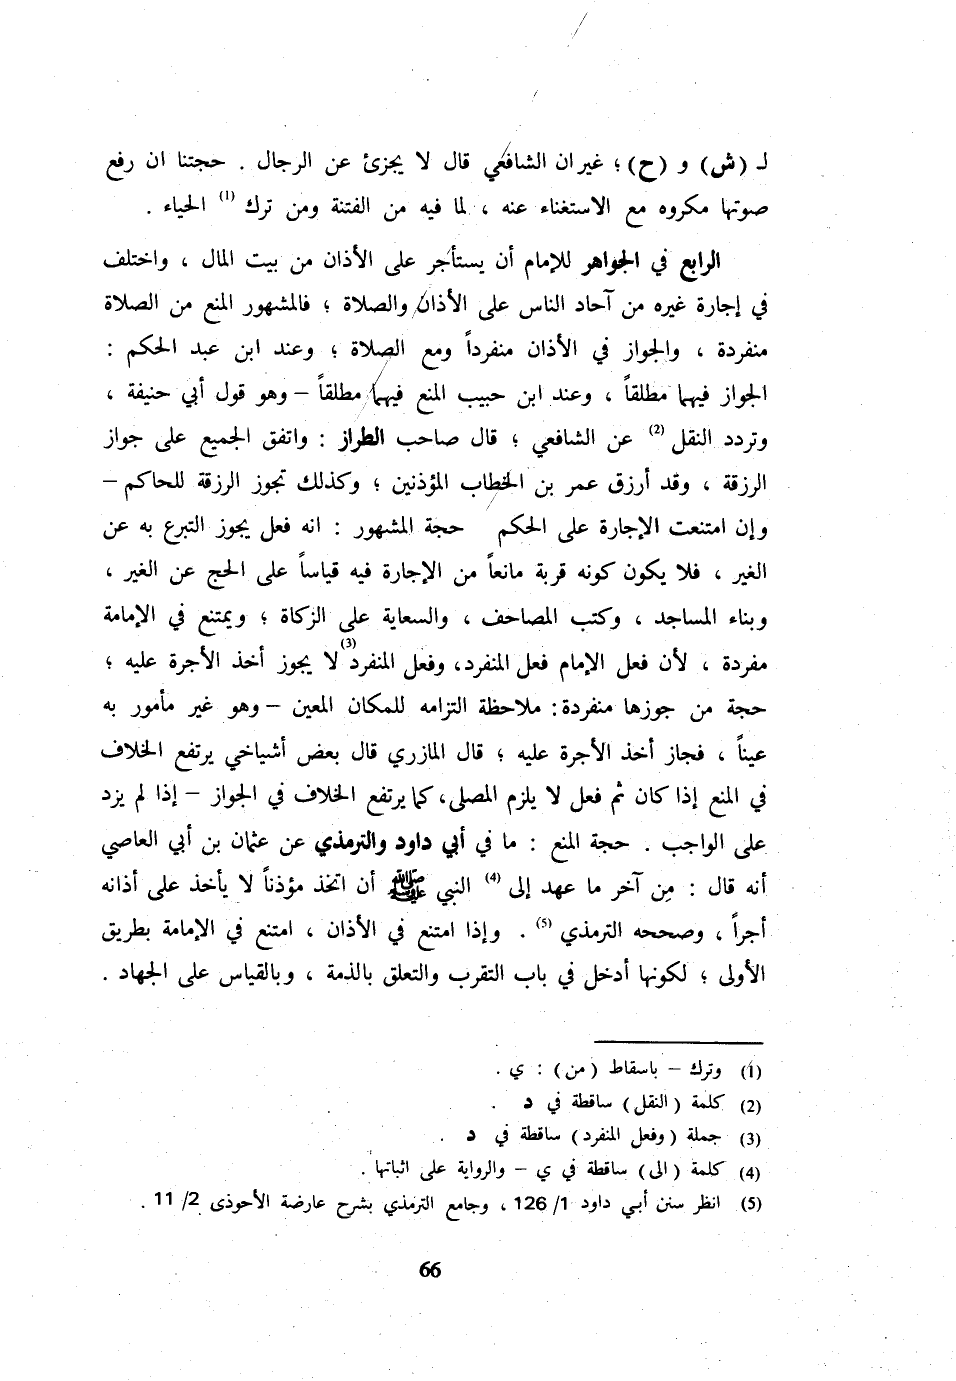 لـ (ش) و (ح) ؛ غير ان الشافعي قال لا يجزئ عن الرجال . حجتنا ان رفع
صوتها مكروه مع الاستغناء عنه ، لما فيه من الفتنة ومن ترك (1) الحياء .
الرابع في الجواهر للإمام أن يستأجر على الأذان من بيت المال ، واختلف
في إجارة غيره من آحاد الناس على الأذان والصلاة ؛ فالمشهور المنع من الصلاة
منفردة ، والجواز في الأذان منفرداً ومع الصلاة ؛ وعند ابن عبد الحكم :
الجواز فيهما مطلقاً ، وعند ابن حبيب المنع فيهما مطلقاً – وهو قول أبي حنيفة ،
وتردد النقل (2) عن الشافعي ؛ قال صاحب الطراز : واتفق الجميع على جواز
الرزقة ، وقد أرزق عمر بن الخطاب المؤذنين ؛ وكذلك تجوز الرزقة للحاكم –
وإن امتنعت الإجارة على الحكم حجة المشهور : انه فعل يجوز التبرع به عن
الغير ، فلا يكون كونه قربة مانعاً من الإجارة فيه قياساً على الحج عن الغير ،
وبناء المساجد ، وكتب المصاحف ، والسعاية على الزكاة ؛ ويمتنع في الإمامة
مفردة ، لأن فعل الإمام فعل المنفرد، وفعل المنفرد (3) لا يجوز أخذ الأجرة عليه ؛
حجة من جوزها منفردة : ملاحظة التزامه للمكان المعين – وهو غير مأمور به
عيناً ، فجاز أخذ الأجرة عليه ؛ قال المازري قال بعض أشياخي يرتفع الخلاف
في المنع إذا كان ثم فعل لا يلزم المصلى، كما يرتفع الخلاف في الجواز – إذا لم يزد
على الواجب . حجة المنع : ما في أبي داود والترمذي عن عثمان بن أبي العاصي
أنه قال : مِن آخر ما عهد إلى (4) النبي ﷺ أن اتخذ مؤذناً لا يأخذ على أذانه
أجراً ، وصححه الترمذي (5) . وإذا امتنع في الأذان ، امتنع في الإمامة بطريق
الأولى ؛ لكونها أدخل في باب التقرب والتعلق بالذمة ، وبالقياس على الجهاد .
(1) وترك – باسقاط (من) : ي .
(2) كلمة (النقل) ساقطة في د .
(3) جملة (وفعل المنفرد) ساقطة في د .
(4) كلمة (الى) ساقطة في ي – والرواية على اثباتها .
(5) انظر سنن أبي داود 1/ 126 ، وجامع الترمذي بشرح عارضة الأحوذى 2/ 11 .
66